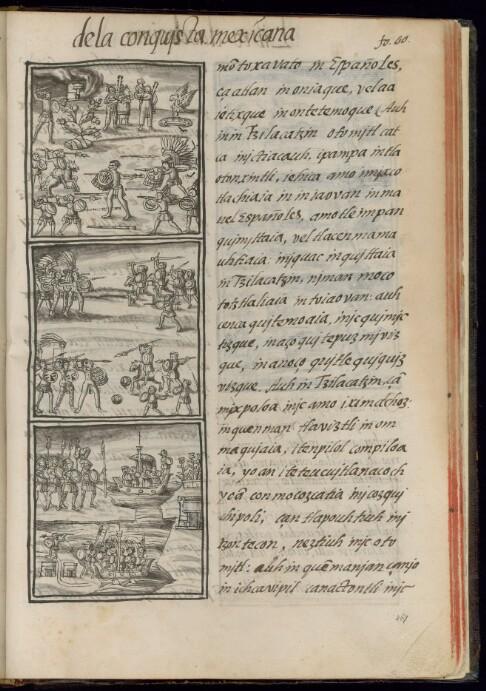 de la conquista mexicana
fo. 60.
motoxavato in Españoles,
ça atlan in oniaque, vel aa
ietixque in ontetemoque. Auh
in in Tzilacatzin otomitl cat
ca injc tiacauh, ipampa in tla
otonxintli, iehica amo imjxco
tlachiaia in iniaovan in ma
nel Españoles, amo tle impan
quimjttaia, vel tlacenmama
uhtiaia: injquac in quijttaia
in Tzilacatzin, njman moco
totztlaliaia in toiaovan: auh
cenca quitemoaia, injc quimjc
tizque, in aço quitepuz mjviz
que, in anoço quitlequiquiz
vizque. Auh in Tzilacatzin, çã
mjxpoloa injc amo iximachoz:
in quenman tlaviztli in om
maquiaia, itenpilol compiloa
ia, yoan iteucuitlanacoch
yoã conmocozcatia in icozqui
chipoli, çan tlapouhtiuh in
tzontecon, neztiuh injc oto
mitl: auh in quemanjan çanio
in ichcavipil canactontli injc